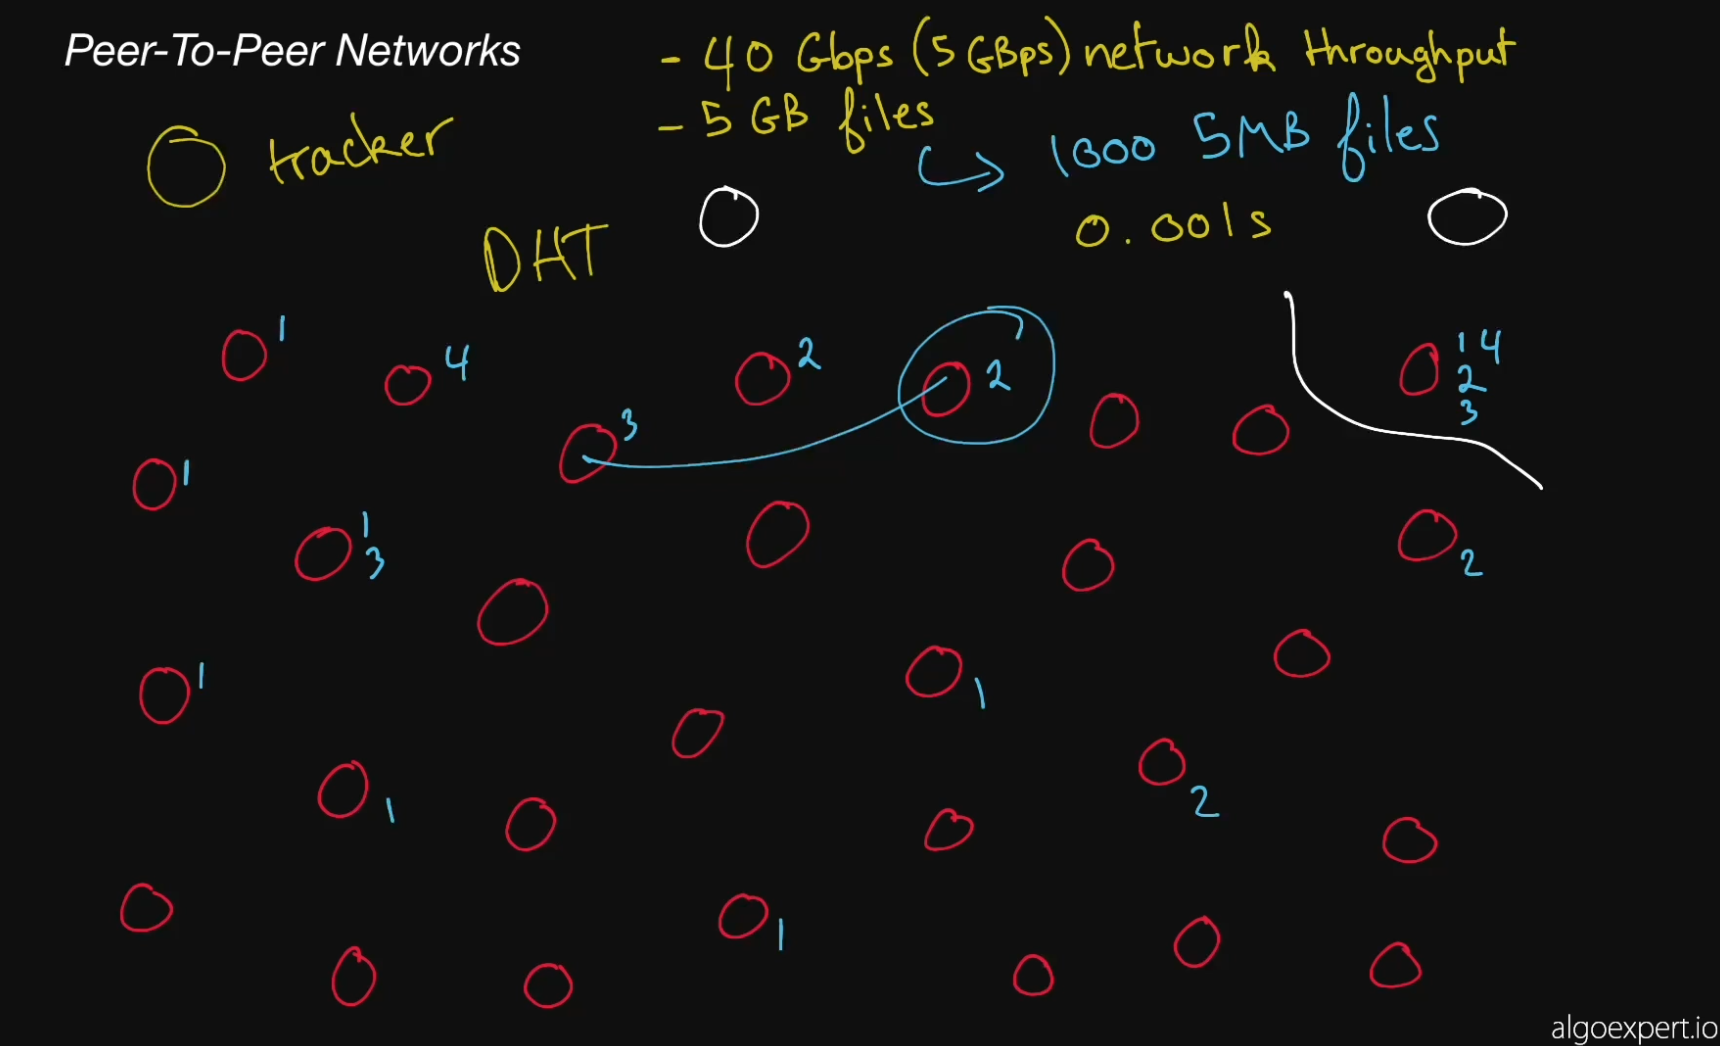 Peer-To-Peer Networks
- 40 Gbps (5 GBps) network throughput
- 5 GB files
1000 5MB files
tracker
0.001s
DHT
1
4
2
2
1 4
2
3
3
1
1
3
2
1
1
1
2
1
algoexpert.io